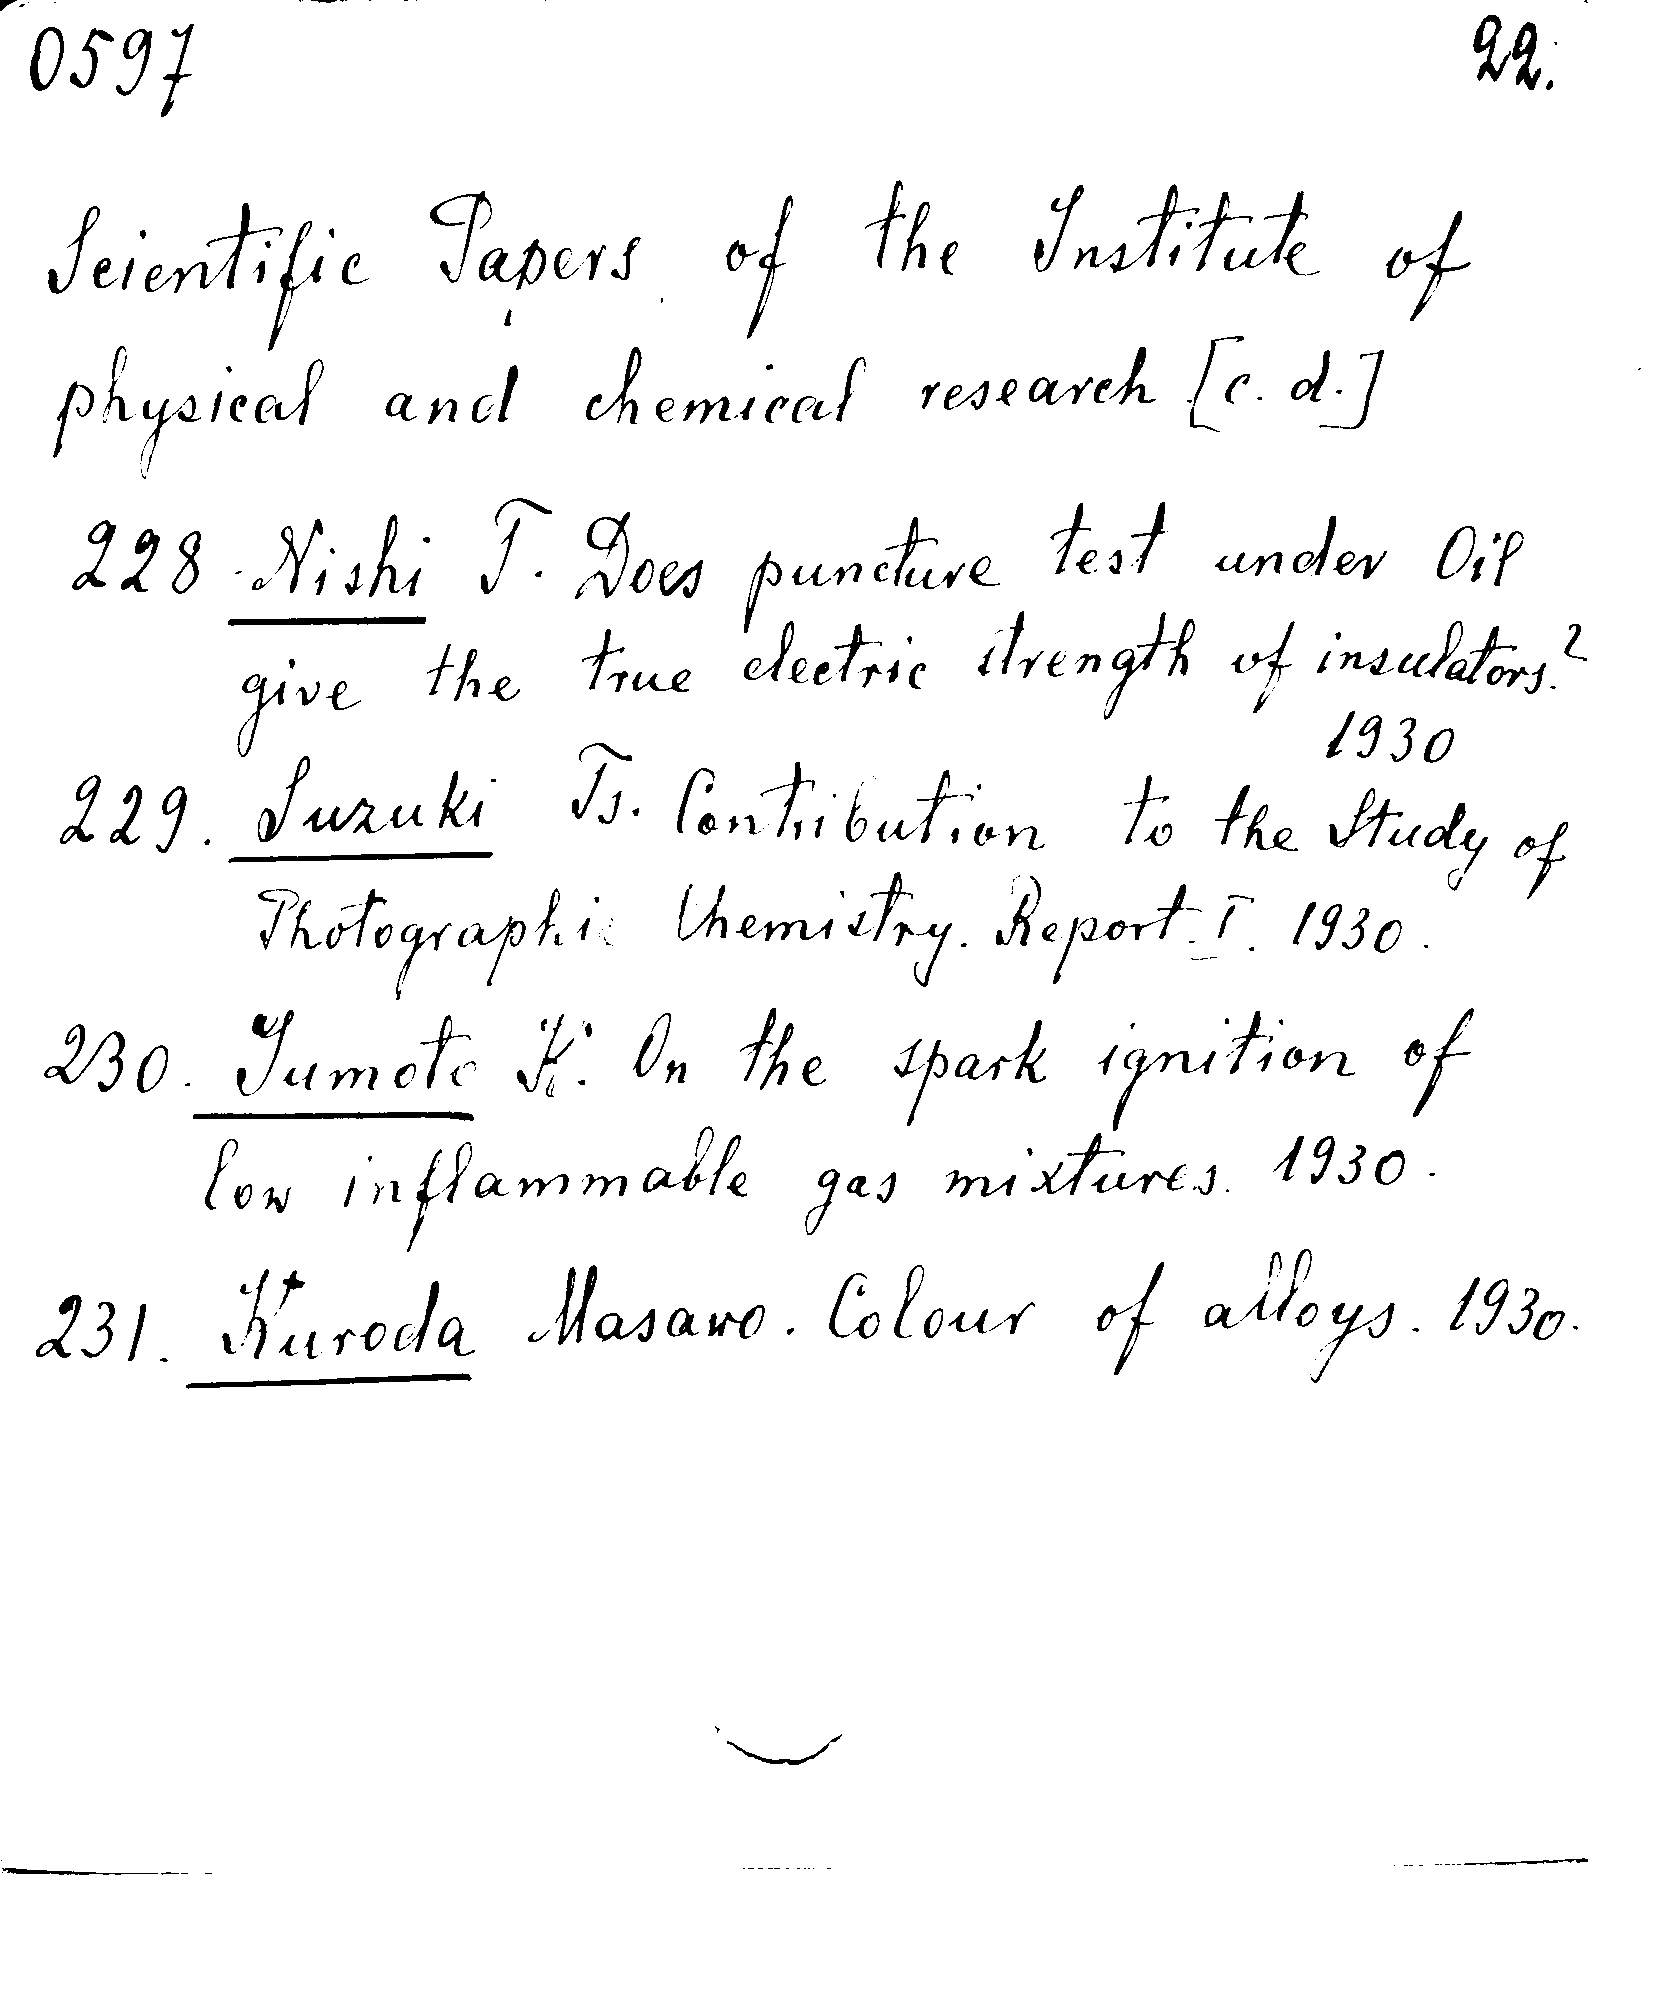 0597 22.
Scientific Papers of the Institute of
physical and chemical research [c. d.]
228. Nishi T. Does puncture test under Oil
give the true electric strength of insulators?
1930
229. Suzuki Ts. Contribution to the Study of
Photographic Chemistry. Report I. 1930.
230. Yumoto K. On the spark ignition of
low inflammable gas mixtures. 1930.
231. Kuroda Masawo. Colour of alloys. 1930.